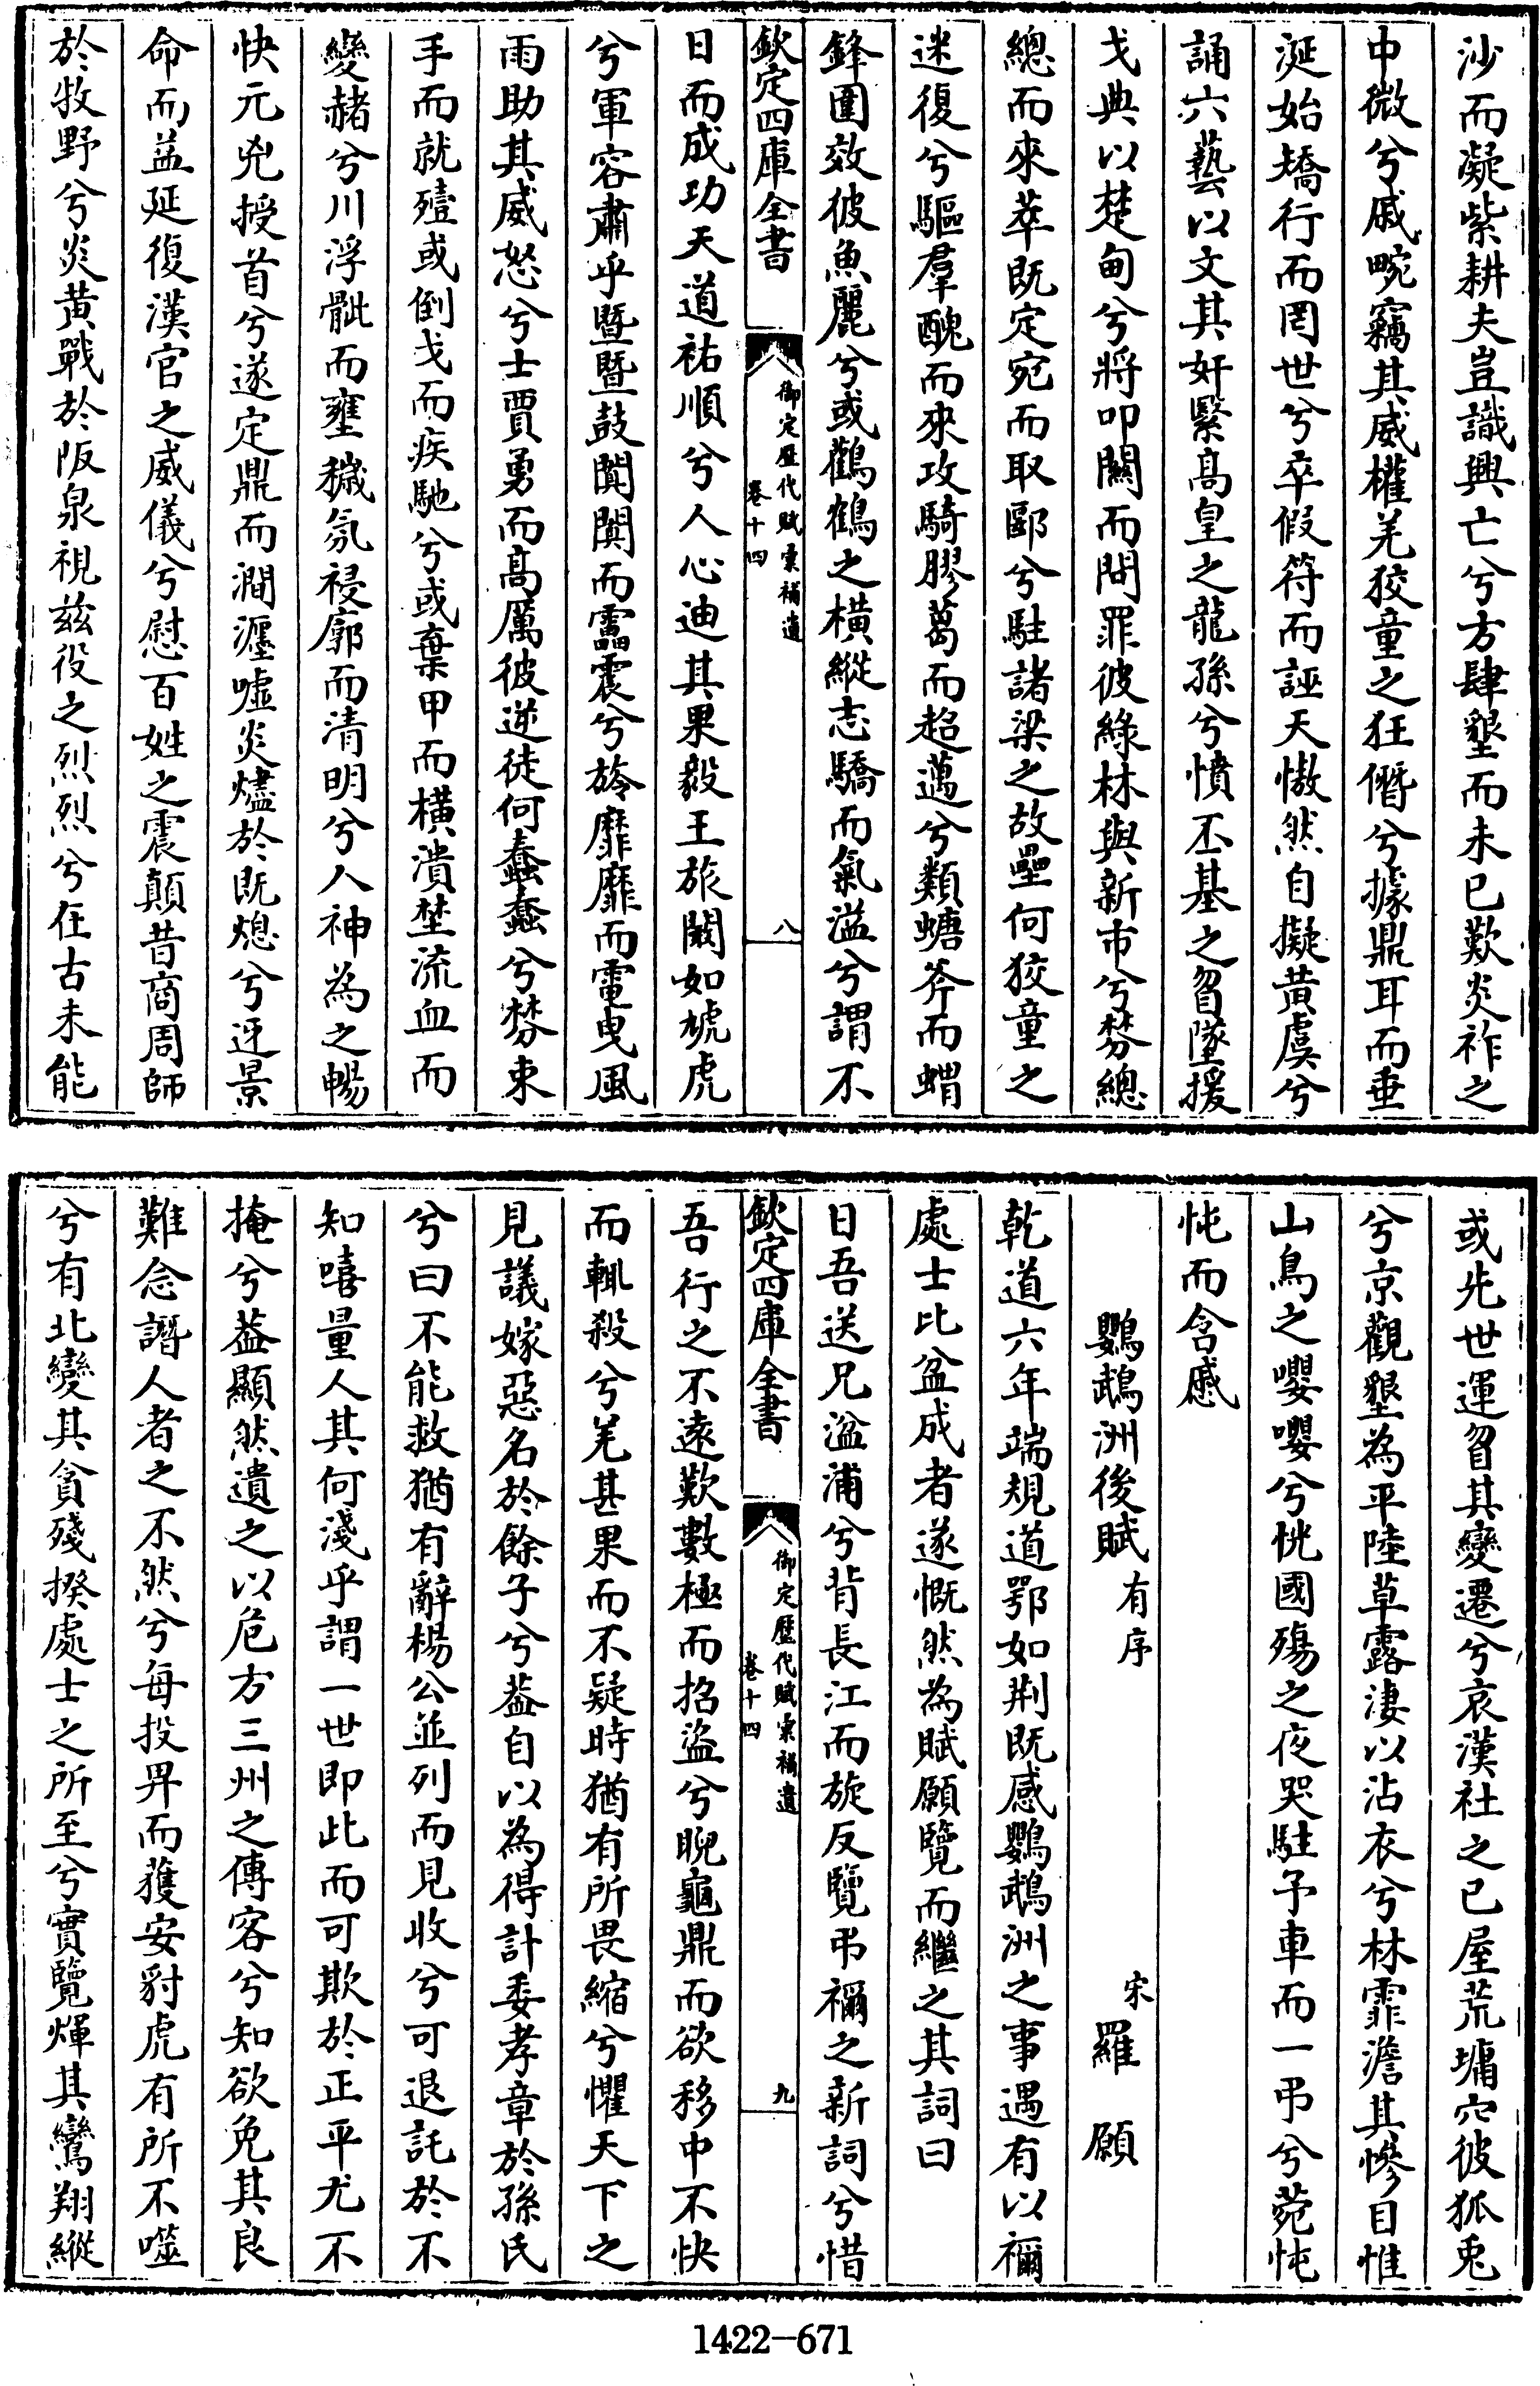 沙而凝紫耕夫豈識興亡兮方肆墾而未已歎炎祚之
中微兮戚畹竊其威權羌狡童之狂僭兮據鼎耳而垂
涎始矯行而罔世兮卒假符而誣天慠然自擬黃虞兮
誦六藝以文其奸繄高皇之龍孫兮憤丕基之曶墜援
戈典以楚甸兮將叩關而問罪彼綠林與新市兮棼總
總而來萃既定宛而取郾兮駐諸梁之故壘何狡童之
迷復兮驅羣醜而來攻騎膠葛而超邁兮類螗斧而蝟
鋒圍效彼魚麗兮或鸛鶴之橫縱志驕而氣溢兮謂不
欽定四庫全書 御定歷代賦彙補遺 卷十四 八
日而成功天道祐順兮人心迪其果毅王旅闞如虓虎
兮軍容肅乎暨暨鼓闐闐而靁震兮旍靡靡而電曳風
雨助其威怒兮士賈勇而高厲彼逆徒何蠢蠢兮棼束
手而就殪或倒戈而疾馳兮或棄甲而橫潰埜流血而
變赭兮川浮骴而壅穢氛祲廓而清明兮人神為之暢
快元兇授首兮遂定鼎而澗瀍噓炎燼於既熄兮迓景
命而益延復漢官之威儀兮慰百姓之震顛昔商周師
於牧野兮炎黃戰於阪泉視茲役之烈烈兮在古未能
或先世運曶其變遷兮哀漢社之已屋荒墉穴彼狐兎
兮京觀墾為平陸草露淒以沾衣兮林霏澹其慘目惟
山鳥之嚶嚶兮恍國殤之夜哭駐予車而一弔兮菀忳
忳而含慼
鸚鵡洲後賦 有序 宋 羅願
乾道六年端規道鄂如荆既感鸚鵡洲之事遇有以禰
處士比盆成者遂慨然為賦願覽而繼之其詞曰
日吾送兄湓浦兮背長江而旋反覽弔禰之新詞兮惜
欽定四庫全書 御定歷代賦彙補遺 卷十四 九
吾行之不遠歎數極而招盜兮睨龜鼎而欲移中不快
而輒殺兮羌甚果而不疑時猶有所畏縮兮懼天下之
見議嫁惡名於餘子兮葢自以為得計委孝章於孫氏
兮曰不能救猶有辭楊公並列而見收兮可退託於不
知嘻量人其何淺乎謂一世即此而可欺於正平尤不
掩兮葢顯然遺之以危方三州之傳客兮知欲免其良
難念譖人者之不然兮每投畀而蒦安豺虎有所不噬
兮有北變其貪殘揆處士之所至兮實覽煇其鸞翔縱
1422-671